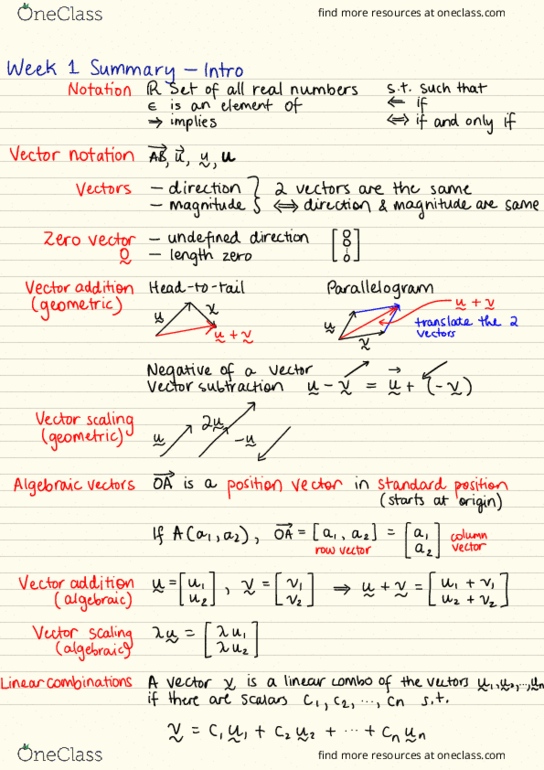 OneClass find more resources at oneclass.com
Week 1 Summary – Intro
Notation ℝ Set of all real numbers s.t. such that
∈ is an element of ⇐ if
⇒ implies ⇔ if and only if
Vector notation A⃗B⃗, u⃗, ṵ, u
Vectors – direction } 2 vectors are the same
– magnitude ⇔ direction & magnitude are same
Zero vector – undefined direction [0 0 ⋮ 0]
0̰ – length zero
Vector addition Head-to-tail Parallelogram
(geometric) ṵ v̰ ṵ + v̰ ṵ v̰ ṵ + v̰
translate the 2
vectors
Negative of a vector
Vector subtraction ṵ - v̰ = ṵ + (-v̰)
Vector scaling
(geometric) ṵ 2ṵ -ṵ
Algebraic vectors O⃗A⃗ is a position vector in standard position
(starts at origin)
If A(a₁, a₂), O⃗A⃗ = [a₁, a₂] = [a₁ a₂] column vector
row vector
Vector addition ṵ = [u₁ u₂], v̰ = [v₁ v₂] ⇒ ṵ + v̰ = [u₁ + v₁ u₂ + v₂]
(algebraic)
Vector scaling λṵ = [λu₁ λu₂]
(algebraic)
Linear combinations A vector v̰ is a linear combo of the vectors ṵ₁, ṵ₂, ..., ṵn
if there are scalars c₁, c₂, ..., cn s.t.
v̰ = c₁ṵ₁ + c₂ṵ₂ + ... + cnṵn
OneClass find more resources at oneclass.com